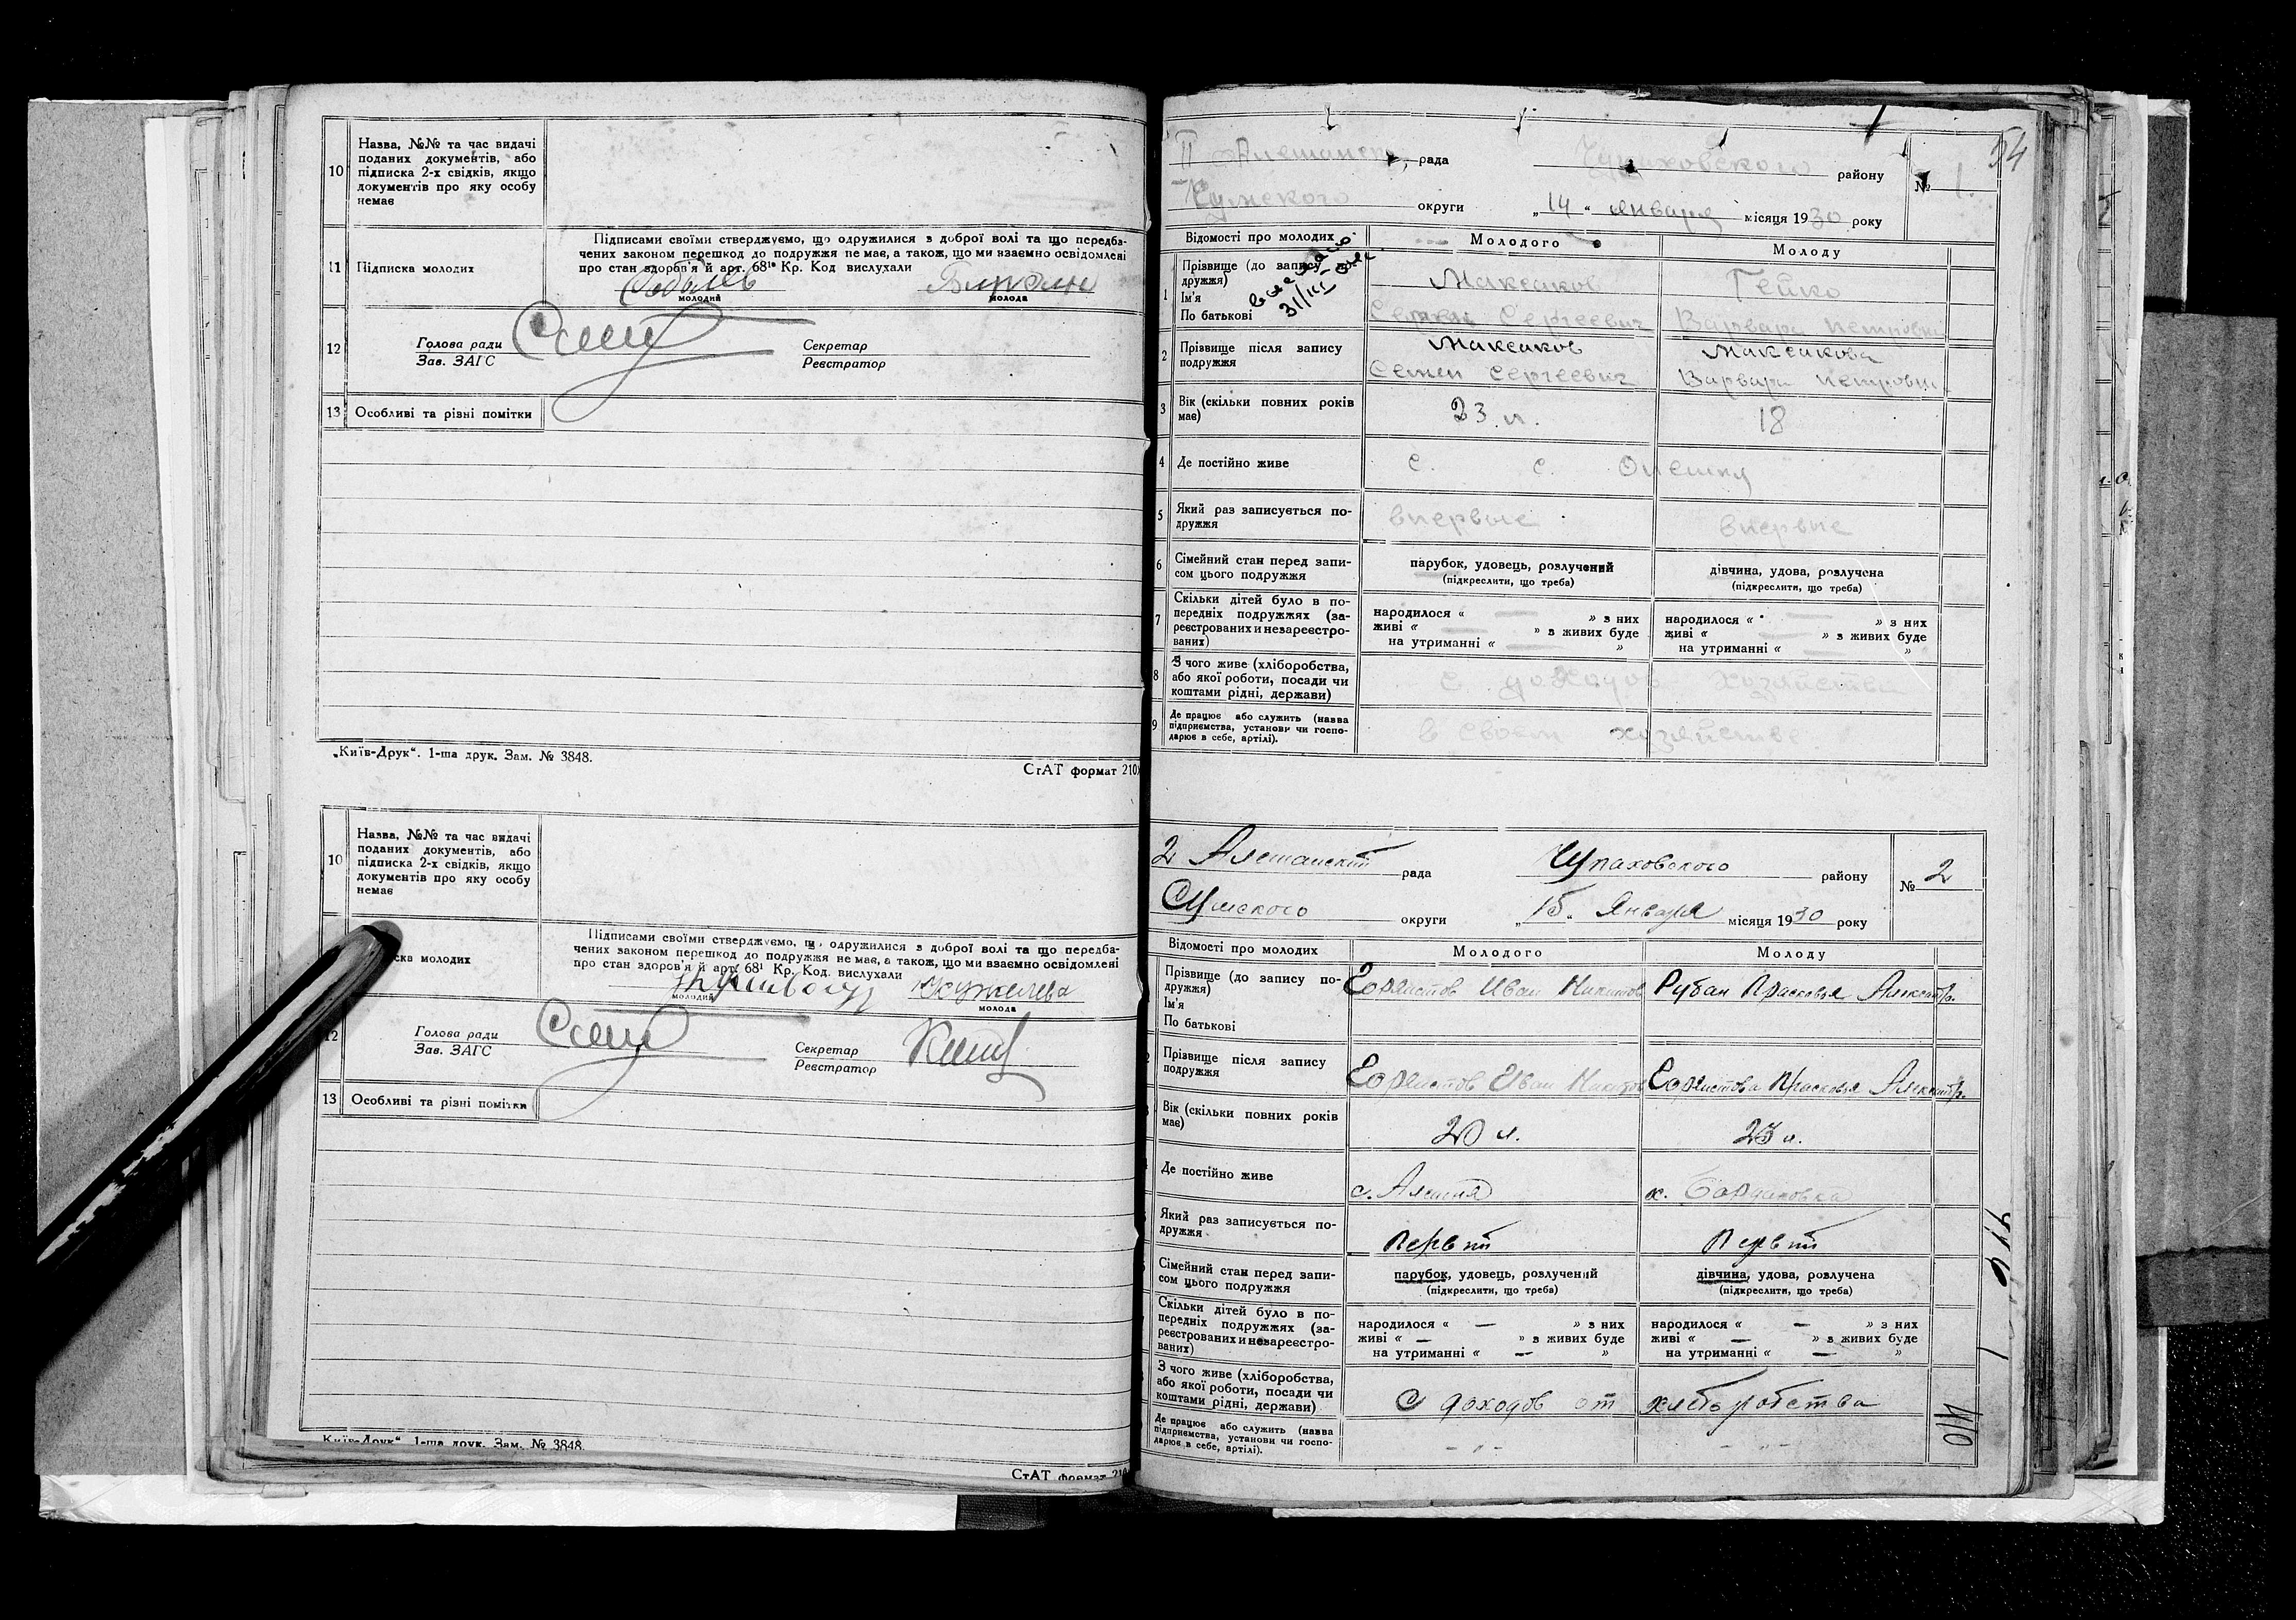 10
Назва, №№ та час видачі
поданих документів, або
підписка 2-х свідків, якщо
документів про яку особу
немає
11 Підписка молодих
Підписами своїми стверджуємо, що одружилися з доброї волі та що передба-
чених законом перешкод до подружжя не має, а також, що ми взаємно освідомлені
про стан здоров'я й арт. 68¹ Кр. Код вислухали
молодий молода
12 Голова ради Секретар
Зав. ЗАГС Реєстратор
13 Особливі та різні помітки
„Київ-Друк“. 1-ша друк. Зам. № 3848.
СтАТ формат 210
10
Назва, №№ та час видачі
поданих документів, або
підписка 2-х свідків, якщо
документів про яку особу
немає
ска молодих
Підписами своїми стверджуємо, що одружилися з доброї волі та що передба-
чених законом перешкод до подружжя не має, а також, що ми взаємно освідомлені
про стан здоров'я й арт. 68¹ Кр. Код. вислухали
молодий молода
12 Голова ради Секретар
Зав. ЗАГС Реєстратор
13 Особливі та різні помітки
Київ-Друк“ 1-ша друк. Зам. № 3848
СтАТ формат 210
54
II рада Чупаховского району № 1.
Сумского округи „14“ января місяця 1930 року
Відомості про молодих Молодого Молоду
1 Прізвище (до запису по-
дружжя)
Ім'я
По батькові
31/III
Максаков Гейко
Семен Сергеевич Варвара Петровна
2 Прізвище після запису
подружжя
Максаков Максакова
Семен Сергеевич Варвара Петровна
3 Вік (скільки повних років
має)
23 л. 18
4 Де постійно живе с. с. Олешня
5 Який раз записується по-
дружжя
впервые впервые
6 Сімейний стан перед запи-
сом цього подружжя
парубок, удовець, розлучений дівчина, удова, розлучена
(підкреслити, що треба) (підкреслити, що треба)
7 Скільки дітей було в по-
передніх подружжях (за-
реєстрованих и незареєстро-
ваних)
народилося « — » з них народилося « — » з них
живі « — » з живих буде живі « — » з живих буде
на утриманні « — » на утриманні « — »
8 З чого живе (хліборобства,
або якої роботи, посади чи
коштами рідні, держави)
с доходов хозяйства
9 Де працює або служить (назва
підприємства, установи чи госпо-
дарює в себе, артілі).
в своем хозяйстве
2 Алешанский рада Чупаховского району № 2
Сумского округи „15“ Января місяця 1930 року
Відомості про молодих Молодого Молоду
Прізвище (до запису по-
дружжя)
Ім'я
По батькові
Иван Никитов Рубан Прасковья Александр.
Прізвище після запису
подружжя
Иван Никитов Прасковья Александр.
Вік (скільки повних років
має)
20 л. 23 л.
Де постійно живе с. Алешня х.
Який раз записується по-
дружжя
первый первый
Сімейний стан перед запи-
сом цього подружжя
парубок, удовець, розлучений дівчина, удова, розлучена
(підкреслити, що треба) (підкреслити, що треба)
Скільки дітей було в по-
передніх подружжях (за-
реєстрованих и незареєстро-
ваних)
народилося « — » з них народилося « — » з них
живі « — » з живих буде живі « — » з живих буде
на утриманні « — » на утриманні « — »
З чого живе (хліборобства,
або якої роботи, посади чи
коштами рідні, держави)
С доходов от хлеборобства
Де працює або служить (назва
підприємства, установи чи госпо-
дарює в себе, артілі).